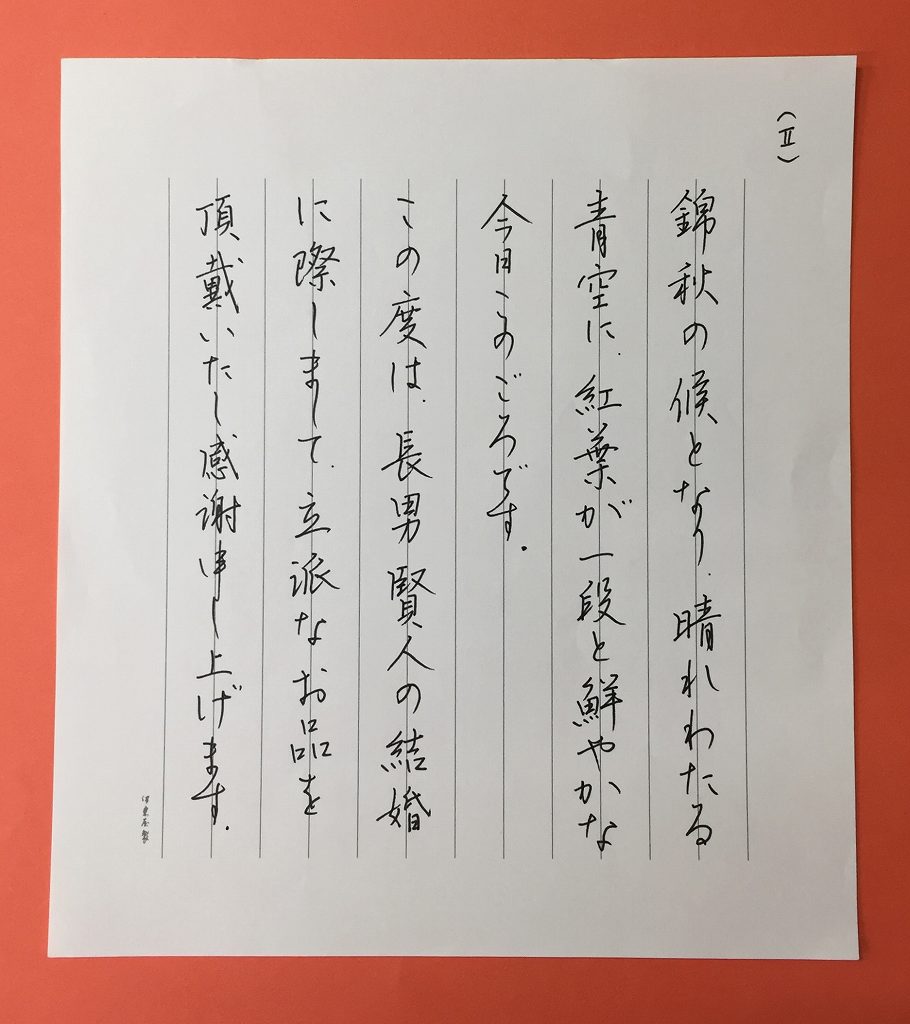 (Ⅱ)
錦秋の候となり、晴れわたる
青空に、紅葉が一段と鮮やかな
今日このごろです。
この度は、長男 賢人の結婚
に際しまして、立派なお品を
頂戴いたし感謝申し上げます。